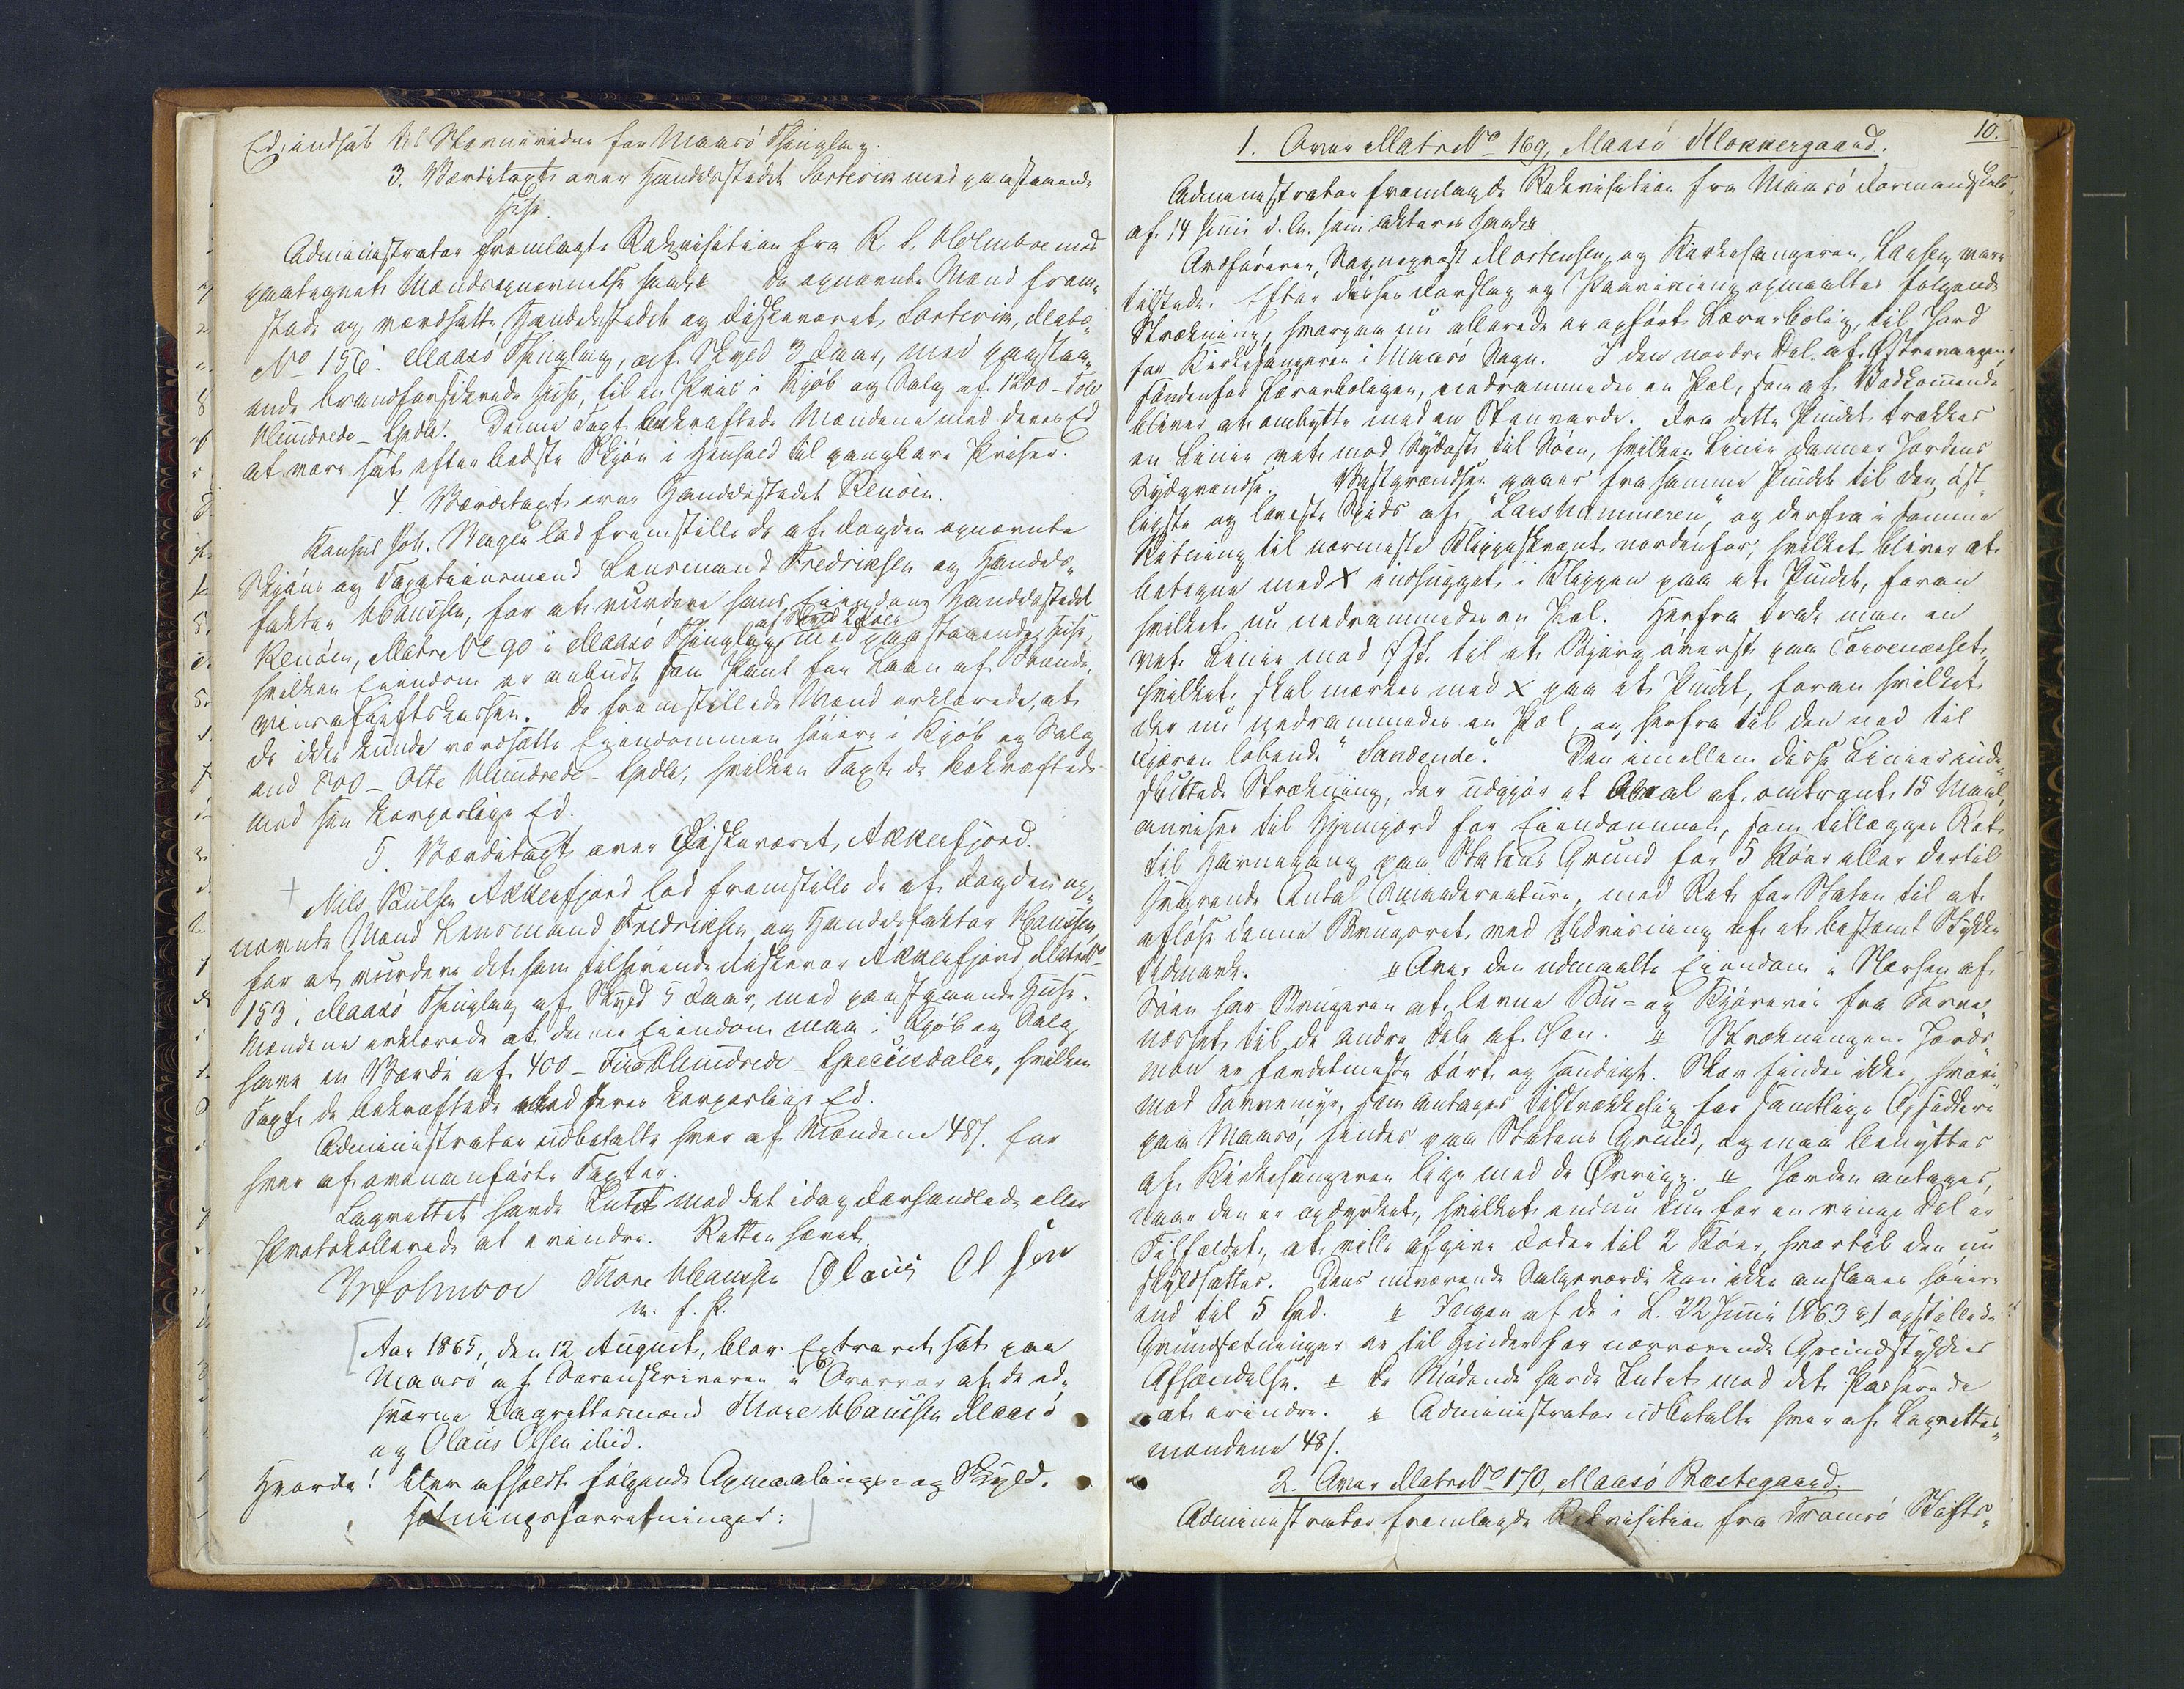 Ed, indsat til Stevnevidne for Maasö Thinglag.
3. Værditaxt over Handelsstedet Sortevik med paastaaende
Huse.
Administrator fremlagte Rekvisition fra R. L. Holmboe med
paategnet Mandsopnævnelse saal. De opnævnte Mænd frem„
stod og værdsatte Handelsstedet og Fiskeværet, Sortevik, Matr.
No 156 i Maasö Thinglag, af Skyld 3 Daler, med paastaa„
ende brandforsikrede Huse, til en Priis i Kjøb og Salg af 1200 – Tolv
Hundrede – Spdlr. Denne Taxt bekræftede Mændene med deres Ed
at være sat efter bedste Skjøn i Henhold til gangbare Priser.
4. Værditaxt over Handelsstedet Renöen.
Konsul Joh. Berger lod fremstille de af Fogden opnævnte
Skjøns og Taxationsmænd Lensmand Fredriksen og Handels„
faktor Hansen, for at vurdere hans Eiendom Handelsstedet
af Skyld 2 Daler
Renöen, Matr. No 90 i Maasö Thinglag, med paastaaende Huse,
hvilken Eiendom er anbudt som Pant for Laan af Brænde„
viinsafgiftskassen. De fremstillede Mænd erklærede, at
de ikke kunde værdsætte Eiendommen høiere i Kjøb og Salg
end 800 – Otte Hundrede – Spdlr, hvilken Taxt de bekræftede
med sin korporlige Ed.
5. Værditaxt over Fiskeværet, Akkerfjord.
+ Nils Poulsen Akkerfjord lod fremstille de af Fogden op„
nævnte Mænd Lensmand Fredriksen og Handelsfaktor Hansen,
for at vurdere det ham tilhørende Fiskevær Akkerfjord, Matr. No
153 i Maasö Thinglag af Skyld 5 Daler, med paastaaende Huse.
Mændene erklærede at denne Eiendom maa i Kjøb og Salg
have en Værdi af 400 – Fire Hundrede – Speciisdaler, hvilken
Taxt de bekræftede med deres korporlige Ed.
Administrator udbetalte hver af Mændene 48 s. for
hver af ovenanførte Taxter.
Lagrettet havde Intet mod det idag Forhandlede eller
Protokollerede at erindre. Retten hævet.
Holmboe Thore Hansen Olaus Olsen
m. f. P.
[Aar 1865, den 12 August, blev Extraret sat paa
Maasö af Sorenskriveren i Overvær af de ed„
svorne Lagrettesmænd Thore Hansen Maasö
og Olaus Olsen ibid.
Hvorda! blev afholdt følgende Opmaalings- og Skyld„
sætningsforretninger:]
10.
1. Over Matr. No 169, Maasö Klokkergaard.
Administrator fremlagde Rekvisition fra Maasö Formandskab
af 14 Juni d. A. som akteres saal.
Ordføreren, Sogneprest Mortensen, og Kirkesangeren, Larsen, vare
tilstede. Efter disses Forslag og Paaviisning opmaaltes følgende
Strækning, hvorpaa nu allerede er opført Lærerbolig, til Jord
for Kirkesangeren i Maasö Sogn. I den nordre Del af Østervaagen,
søndenfor Lærerboligen, nedrammedes en Pæl, som af Vedkommende
bliver at ombytte med en Steenvarde. Fra dette Punkt trækkes
en Linie ret mod Sydost til Söen, hvilken Linie danner Jordens
Sydgrændse. Vestgrændsen gaaer fra samme Punkt til den øst„
ligste og laveste Spids af "Larshammeren", og derfra i samme
Retning til nærmeste Klippeskrænt nordenfor, hvilket bliver at
betegne med X indhugget i Klippen paa et Punkt, foran
hvilket nu nedrammedes en Pæl. Herfra trak man en
ret Linie mod Ost til et Bjerg øverst paa Torvenæsset,
hvilket skal mærkes med X paa et Punkt, foran hvilket
der nu nedrammedes en Pæl, og herfra til den ned til
Fjæren løbende "Sandende". Den imellem disse Linier inde„
sluttede Strækning, der udgjør et Areal af omtrent 15 Maal,
anvises til Hjemjord for Eiendommen, som tillægges Ret
til Havnegang paa Statens Grund for 5 Köer eller dertil
svarende Antal Smaakreature, med Ret for Staten til at
afløse denne Brugsret med Udvisning af et bestemt Stykke
Udmark. # Over den udmaalte Eiendom i Nærheden af
Søen har Brugeren at levne Bu- og Kjørevei fra Torve„
næsset til de andre Dele af Øen. # Strækningens Jords„
mon er fordetmeste tørt og sandigt. Skov findes ikke, hvori„
mod Torvemyr, som antages tilstrækkelig for samtlige Opsiddere
paa Maasö, findes paa Statens Grund, og maa benyttes
af Kirkesangeren lige med de Øvrige. # Jorden antages,
naar den er opdyrket, hvilket endnu kun for en ringe Del er
Tilfældet, at ville afgive Foder til 2 Köer, hvortil den nu
skyldsættes. Dens nuværende Salgsværdi kan ikke anslaaes høiere
end til 5 Spd. # Ingen af de i L. 22 Juni 1863 § 1 opstillede
Grundsætninger er til Hinder for nærværende Grundstykkes
Afhændelse. # De Mødende havde Intet mod det Passerede
at erindre. # Administrator udbetalte hver af Lagrettes„
mændene 48 s.
2. Over Matr. No 170, Maasö Præstegaard.
Administrator fremlagde Rekvisition fra Tromsö Stifts„